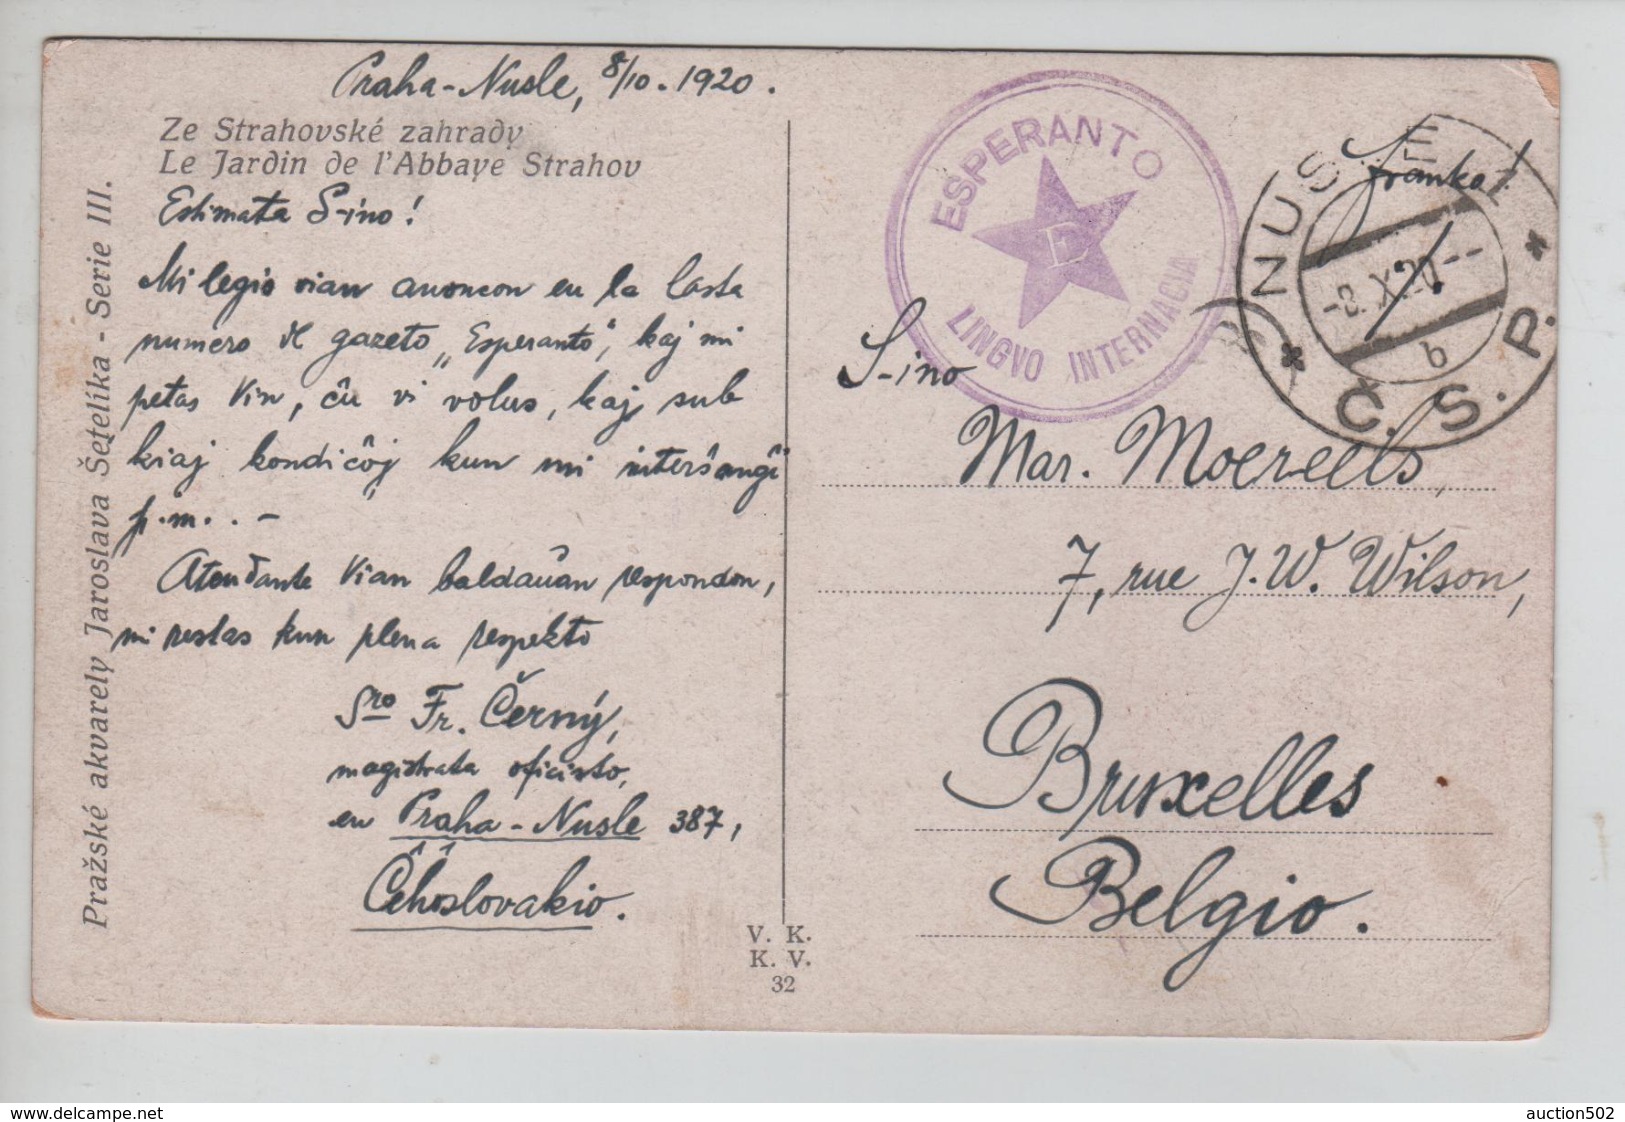 Praha-Nusle, 8/10. 1920.
Ze Strahovské zahrady
Le Jardin de l'Abbaye Strahov
Estimata S-ino!
Mi legis vian anoncon en la lasta
numero de gazeto „Esperanto", kaj mi
petas Vin, ĉu vi volus, kaj sub
kiaj kondiĉoj kun mi interŝanĝi
p.m. . -
Atendante Vian baldaŭan respondon,
mi restas kun plena respekto
Sro Fr. Černý,
magistrata oficisto,
en Praha-Nusle 387,
Ĉeĥoslovakio.
Pražské akvarely Jaroslava Šetelíka - Serie III.
V. K.
K. V.
32
ESPERANTO
E
LINGVO INTERNACIA
NUSLE 1
franko!
-8.X.20--
b
* Č. S. P. *
S-ino
Mar. Moereels,
7, rue J. W. Wilson,
Bruxelles
Belgio.
delcampe.net
auction502